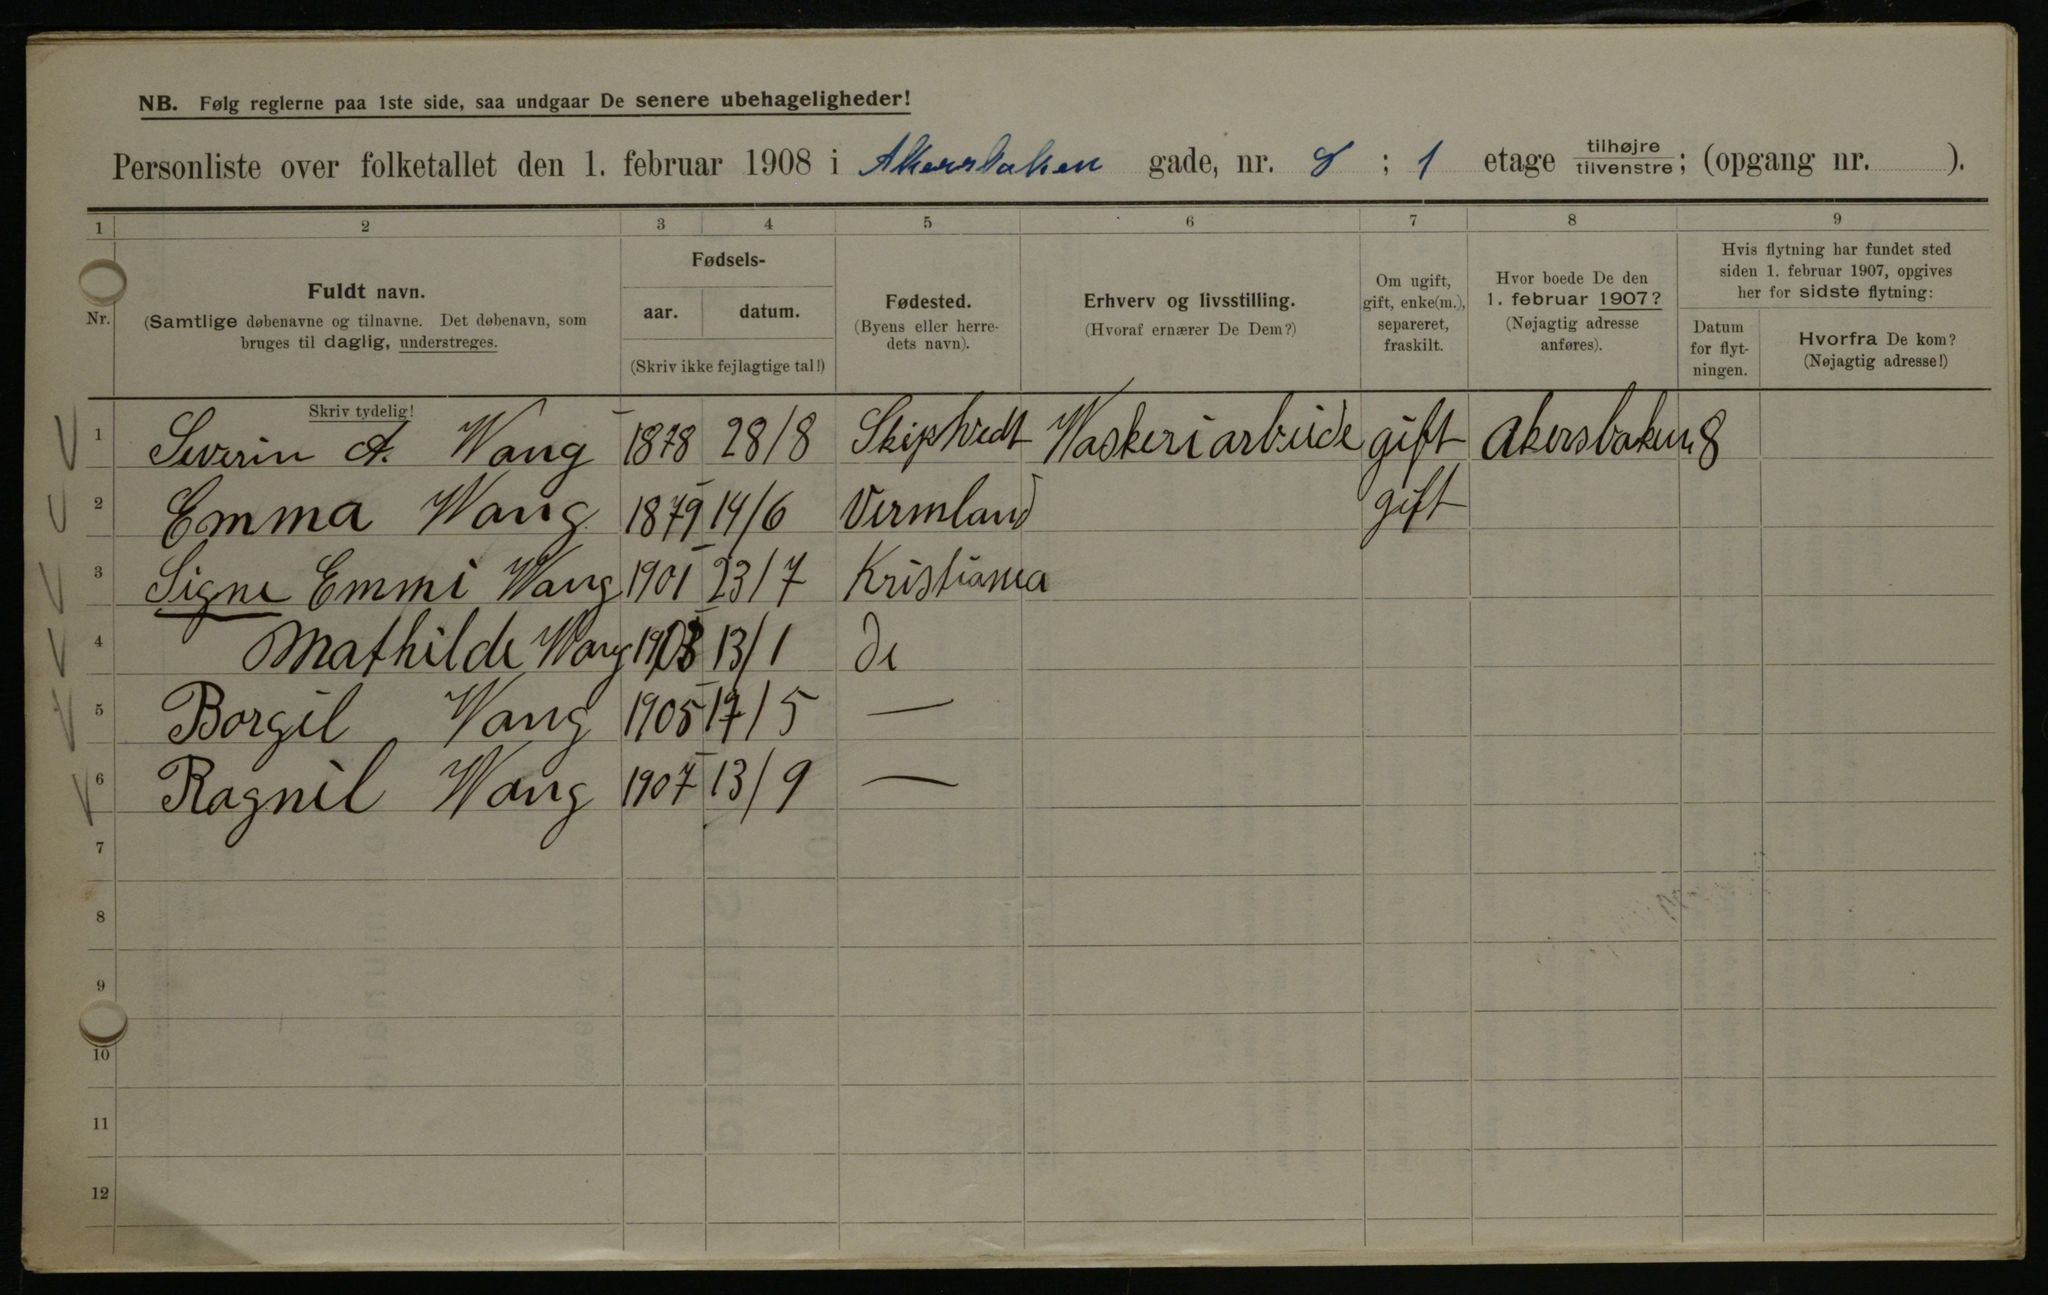 NB. Følg reglerne paa 1ste side, saa undgaar De senere ubehageligheder!
Personliste over folketallet den 1. februar 1908 i Akersbaken gade, nr. 8 ; 1 etage tilhøjre/tilvenstre; (opgang nr. ).
1 2 3 4 5 6 7 8 9
Nr.
Fuldt navn.
(Samtlige døbenavne og tilnavne. Det døbenavn, som
bruges til daglig, understreges.
Skriv tydelig!
Fødsels-
aar. datum.
(Skriv ikke fejlagtige tal!)
Fødested.
(Byens eller herre-
dets navn).
Erhverv og livsstilling.
(Hvoraf ernærer De Dem?)
Om ugift,
gift, enke(m.),
separeret,
fraskilt.
Hvor boede De den
1. februar 1907?
(Nøjagtig adresse
anføres).
Hvis flytning har fundet sted
siden 1. februar 1907, opgives
her for sidste flytning:
Datum
for flyt-
ningen.
Hvorfra De kom?
(Nøjagtig adresse!)
1 Severin A. Wang 1878 28/8 Skiphvedt Waskeriarbeide gift Akersbaken 8
2 Emma Wang 1879 14/6 Vermland gift
3 Signe Emmi Wang 1901 23/7 Kristiania
4 Mathilde Wang 1903 13/1 de
5 Borgil Wang 1905 17/5 —
6 Ragnil Wang 1907 13/9 —
7
8
9
10
11
12